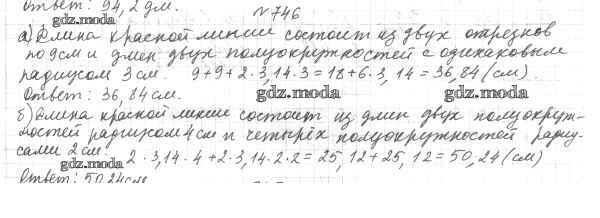 Ответ: 94,2 дм.
№746
gdz.moda
а) Длина красной линии состоит из двух отрезков
по 9см и длин двух полуокружностей с одинаковым
радиусом 3 см. 9+9+2·3,14·3=18+6·3,14=36,84(см).
Ответ: 36,84см.
gdz.moda gdz.moda
б) Длина красной линии состоит из длин двух полуокруж-
ностей радиусом 4 см и четырёх полуокружностей радиу-
сами 2 см.
gdz.moda
2·3,14·4+2·3,14·2·2=25,12+25,12=50,24(см)
Ответ: 50,24см.